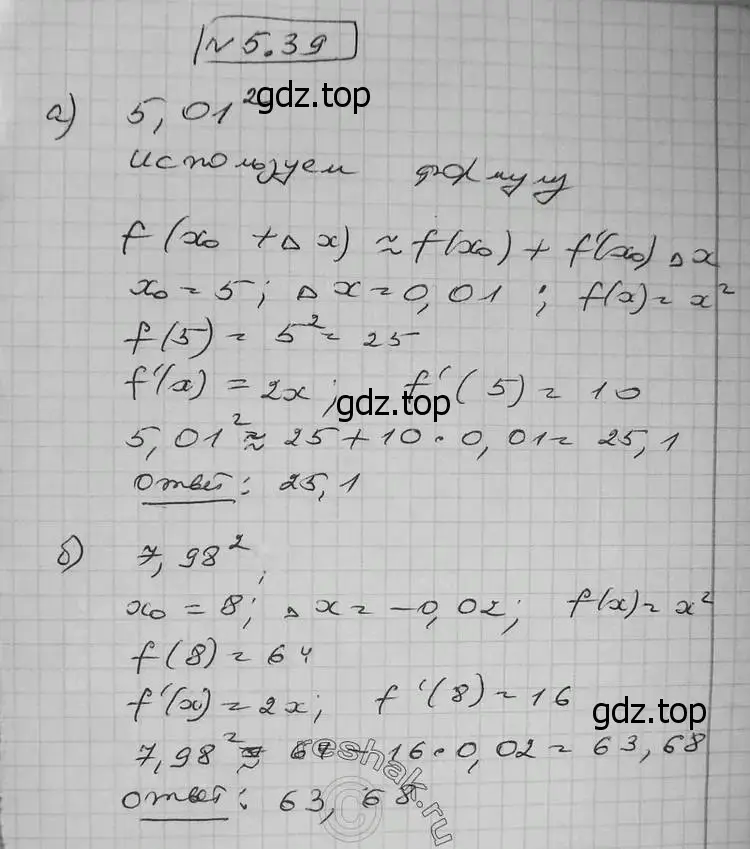 № 5.39
а) 5,01²
gdz.top
используем формулу
f(x₀ + Δx) ≈ f(x₀) + f'(x₀) Δx
x₀ = 5; Δx = 0,01; f(x) = x²
f(5) = 5² = 25
f'(x) = 2x; f'(5) = 10
gdz.top
5,01² ≈ 25 + 10 · 0,01 = 25,1
Ответ: 25,1
б) 7,98²;
x₀ = 8; Δx = -0,02; f(x) = x²
f(8) = 64
f'(x) = 2x; f'(8) = 16
gdz.top
7,98² ≈ 64 - 16 · 0,02 = 63,68
Ответ: 63,68
reshak.ru